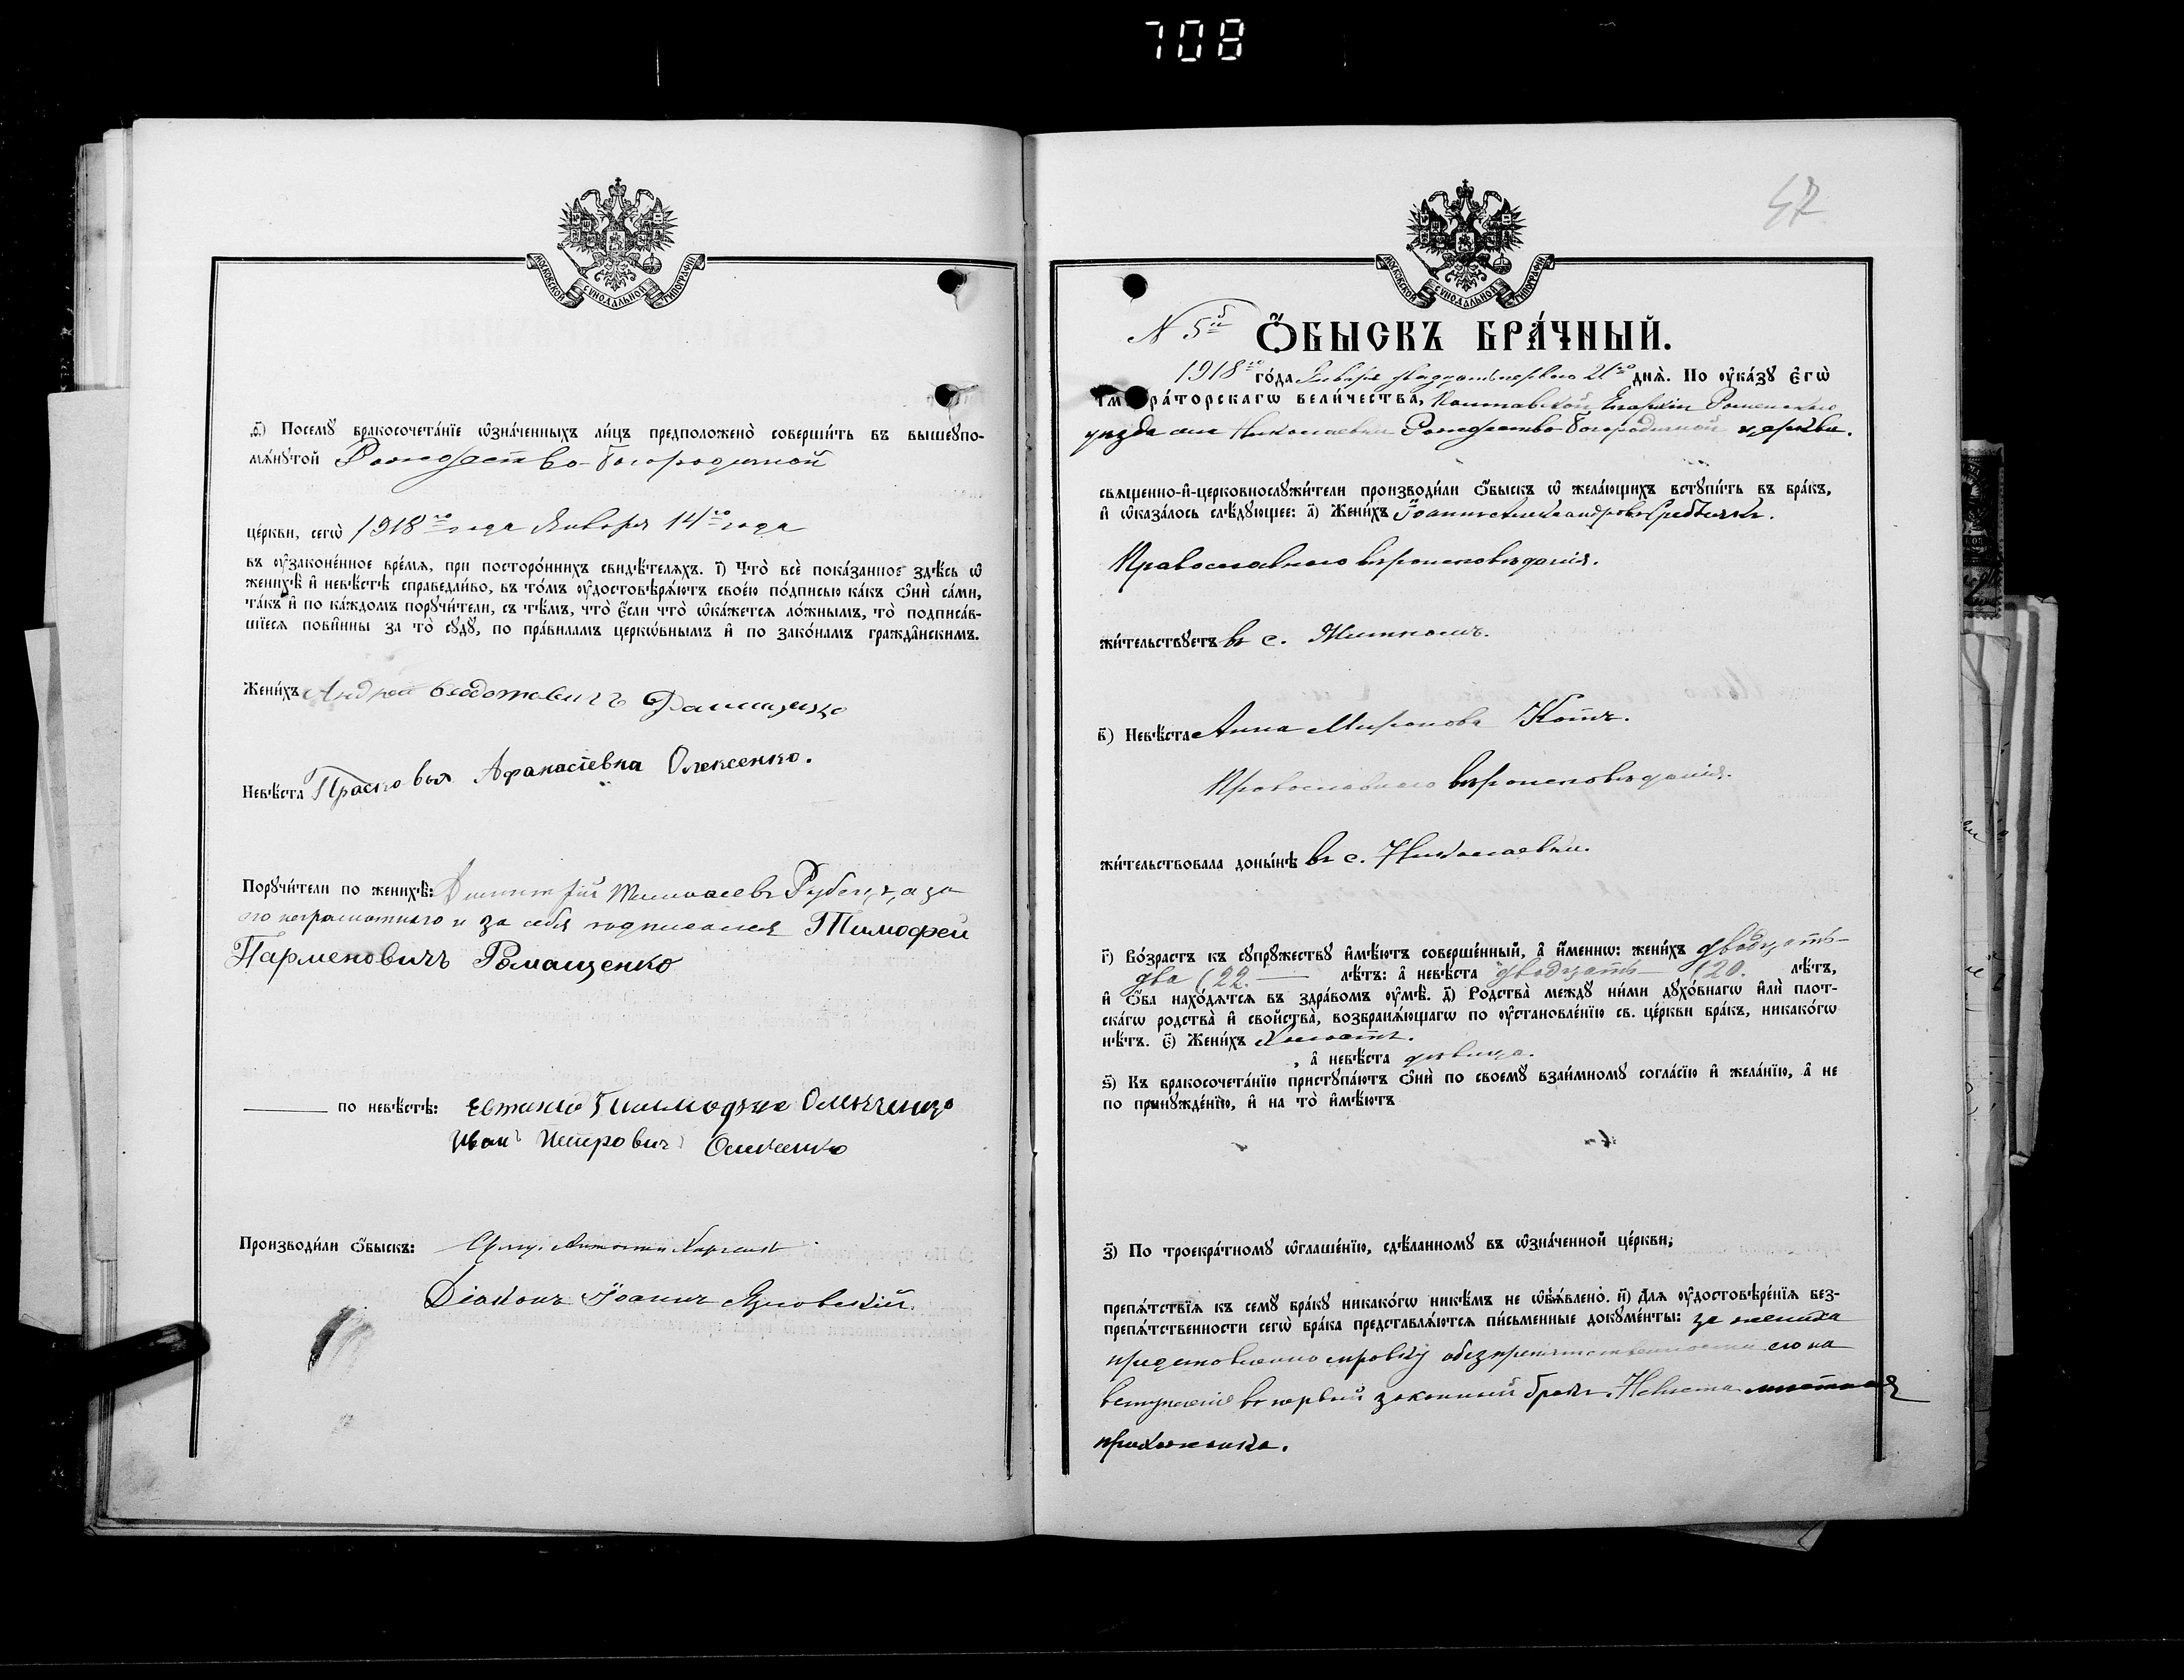 708
МОСКОВСКОЙ СѴНОДАЛЬНОЙ ТИПОГРАФІИ
ѳ҃) Посемꙋ̀ бракосочета́нїе ѡ҆зна́ченныхъ ли́цъ предположено̀ соверши́ть въ вышеꙋпо-
мѧ́нꙋтой Рождество-Богородичной
це́ркви, сегѡ̀ 1918го года Января 14го года
въ ᲂу҆зако́ненное вре́мѧ, при посторо́ннихъ свидѣ́телѧхъ. і҃) Что̀ всѐ пока́занное здѣ́сь ѡ҆
женихѣ̀ и҆ невѣ́стѣ справедли́во, въ то́мъ ᲂу҆достовѣрѧ́ютъ свое́ю по́дписью ка́къ ѻ҆нѝ са́ми,
та́къ и҆ по ка́ждомъ порꙋчи́тели, съ тѣ́мъ, что̀ є҆́сли что̀ ѡ҆ка́жетсѧ ло́жнымъ, то̀ подписа́в-
шїесѧ пови́нны за то̀ сꙋдꙋ̀, по пра́виламъ церко́внымъ и҆ по зако́намъ гражда́нскимъ.
Жени́хъ Андрей
Невѣ́ста Прасковья Афанасіевна Олексенко.
Порꙋчи́тели по женихѣ̀: Димитрій Рубец, а за
его неграмотного и за себя подписался Тимофей
Парменовичъ Ромащенко
по невѣ́стѣ:
Иван Петрович
Производи́ли ѻ҆́быскъ: Свящ.
Діаконъ Іоаннъ Яновскій.
47
МОСКОВСКОЙ СѴНОДАЛЬНОЙ ТИПОГРАФІИ
N 5й
Ѻ҆́БЫСКЪ БРА́ЧНЫЙ.
1918го го́да Января двадцать первого 21го днѧ̀. По ᲂу҆ка́зꙋ Є҆гѡ̀
И҆мпера́торскагѡ вели́чества, Полтавской Епархіи Роменского
уезда села Николаевки Рождество-Богородичной церкви.
свѧщенно-и҆-церковнослꙋжи́тели производи́ли ѻ҆́быскъ ѡ҆ жела́ющихъ встꙋпи́ть въ бра́къ,
и҆ ѡ҆каза́лось слѣ́дꙋющее: а҃) Жени́хъ Іоаннъ Александровъ
Православного вѣроисповѣданія.
жи́тельствꙋетъ въ с.
в҃) Невѣ́ста Анна Миронова Котъ.
Православного вѣроисповѣданія.
жи́тельствовала доны́нѣ въ с. Николаевки.
г҃) Во́зрастъ къ сꙋпрꙋ́жествꙋ и҆мѣ́ютъ соверше́нный, а҆ и҆́меннѡ: жени́хъ двадцать
два (22. лѣ́тъ: а҆ невѣ́ста двадцать (20. лѣ́тъ,
и҆ ѻ҆́ба нахо́дѧтсѧ въ здра́вомъ ᲂу҆мѣ̀. д҃) Родства̀ междꙋ̀ ни́ми дꙋхо́внагѡ и҆лѝ плот-
ска́гѡ родства̀ и҆ свойства̀, возбранѧ́ющагѡ по ᲂу҆становле́нїю св. це́ркви бра́къ, никако́гѡ
нѣ́тъ. є҃) Жени́хъ холостъ.
, а҆ невѣ́ста дѣвица.
ѕ҃) Къ бракосочета́нїю пристꙋпа́ютъ ѻ҆нѝ по своемꙋ̀ взаи́мномꙋ согла́сїю и҆ жела́нїю, а҆ не
по принꙋжде́нїю, и҆ на то̀ и҆мѣ́ютъ
з҃) По троекра́тномꙋ ѡ҆глаше́нїю, сдѣ́ланномꙋ въ ѡ҆зна́ченной це́ркви,
препѧ́тствїѧ къ семꙋ̀ бра́кꙋ никако́гѡ никѣ́мъ не ѡ҆б̾ѧ́влено. и҃) Длѧ ᲂу҆достовѣре́нїѧ без-
препѧ́тственности сегѡ̀ бра́ка представлѧ́ютсѧ пи́сьменные докꙋме́нты: за жениха
представлено справку о безпрепятственности его на
вступленіе въ первый законный бракъ. Невѣста мѣстная
прихожанка.